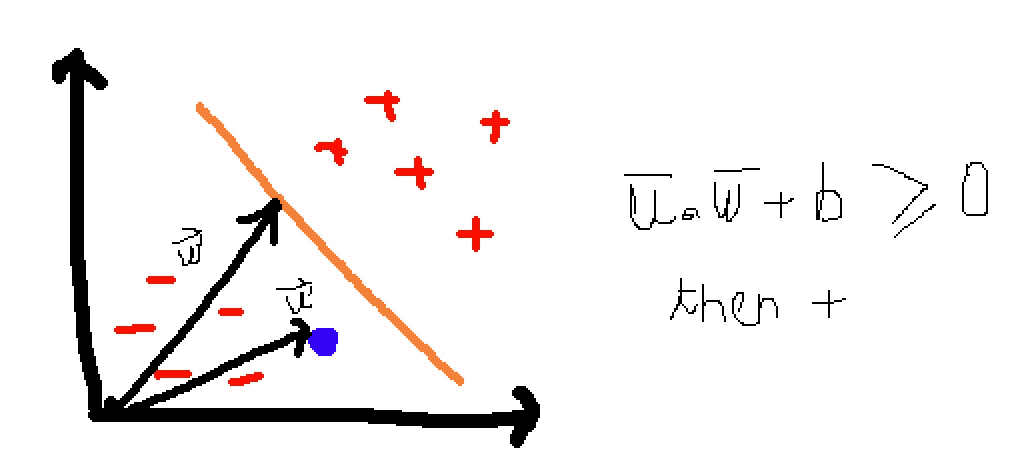 w⃗
u⃗
u̅.w̅ + b ⩾ 0
then +